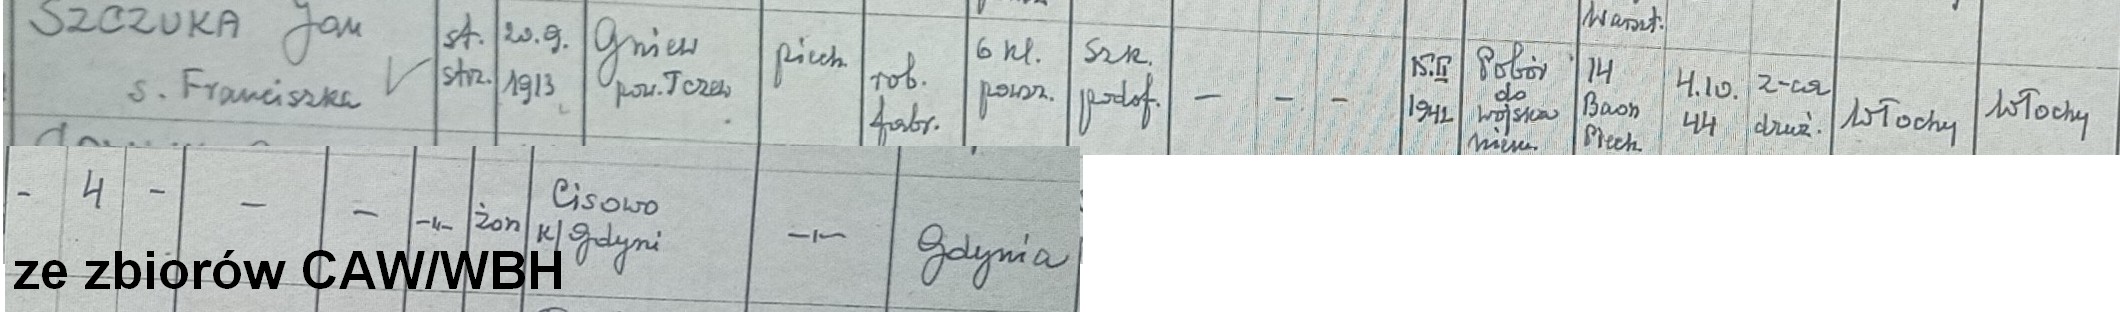 SZCZUKA Jan
s. Franciszka
st.
strz.
20.9.
1913
Gniew
pow. Tczew
piech.
rob.
fabr.
6 kl.
powsz.
Szk.
podof.
-
-
-
15.II
1942
Pobór
do
wojska
niem.
Warszt.
14
Baon
Piech.
4.10.
44
z-ca
druż.
Włochy
Włochy
-
4
-
-
-
-"-
żon
Cisowo
k/Gdyni
-"-
Gdynia
ze zbiorów CAW/WBH